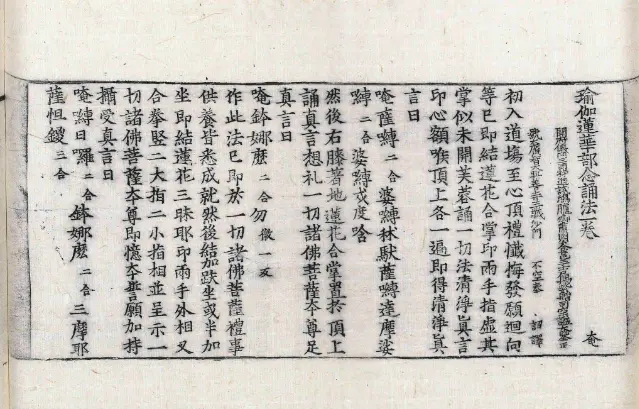 瑜伽蓮華部念誦法卷 菴
大廣智大興善寺三藏沙門 不空奉 詔譯
初入道場至心頂禮懺悔發願迴向
等已即結蓮花合掌印兩手指虛其
掌似未開芙蓉誦一切法清淨真言
印心額喉頂上各一遍即得清淨真
言曰
唵薩嚩二合婆嚩秫馱薩嚩達麽娑
嚩二合婆嚩戍度唅
然後右膝著地蓮花合掌置於頂上
誦真言想礼一切諸佛菩薩本尊足
真言曰
唵鉢娜麽二合勿微一反
作此法已即於一切諸佛菩薩禮事
供養皆悉成就然後結加趺坐或半加
坐即結蓮花三昧耶印兩手外相叉
合拳竪二大指二小指相並呈示一
切諸佛菩薩本尊即憶本誓願加持
攝受真言曰
唵嚩日囉二合鉢娜麽二合三摩耶
薩怛鑁三合